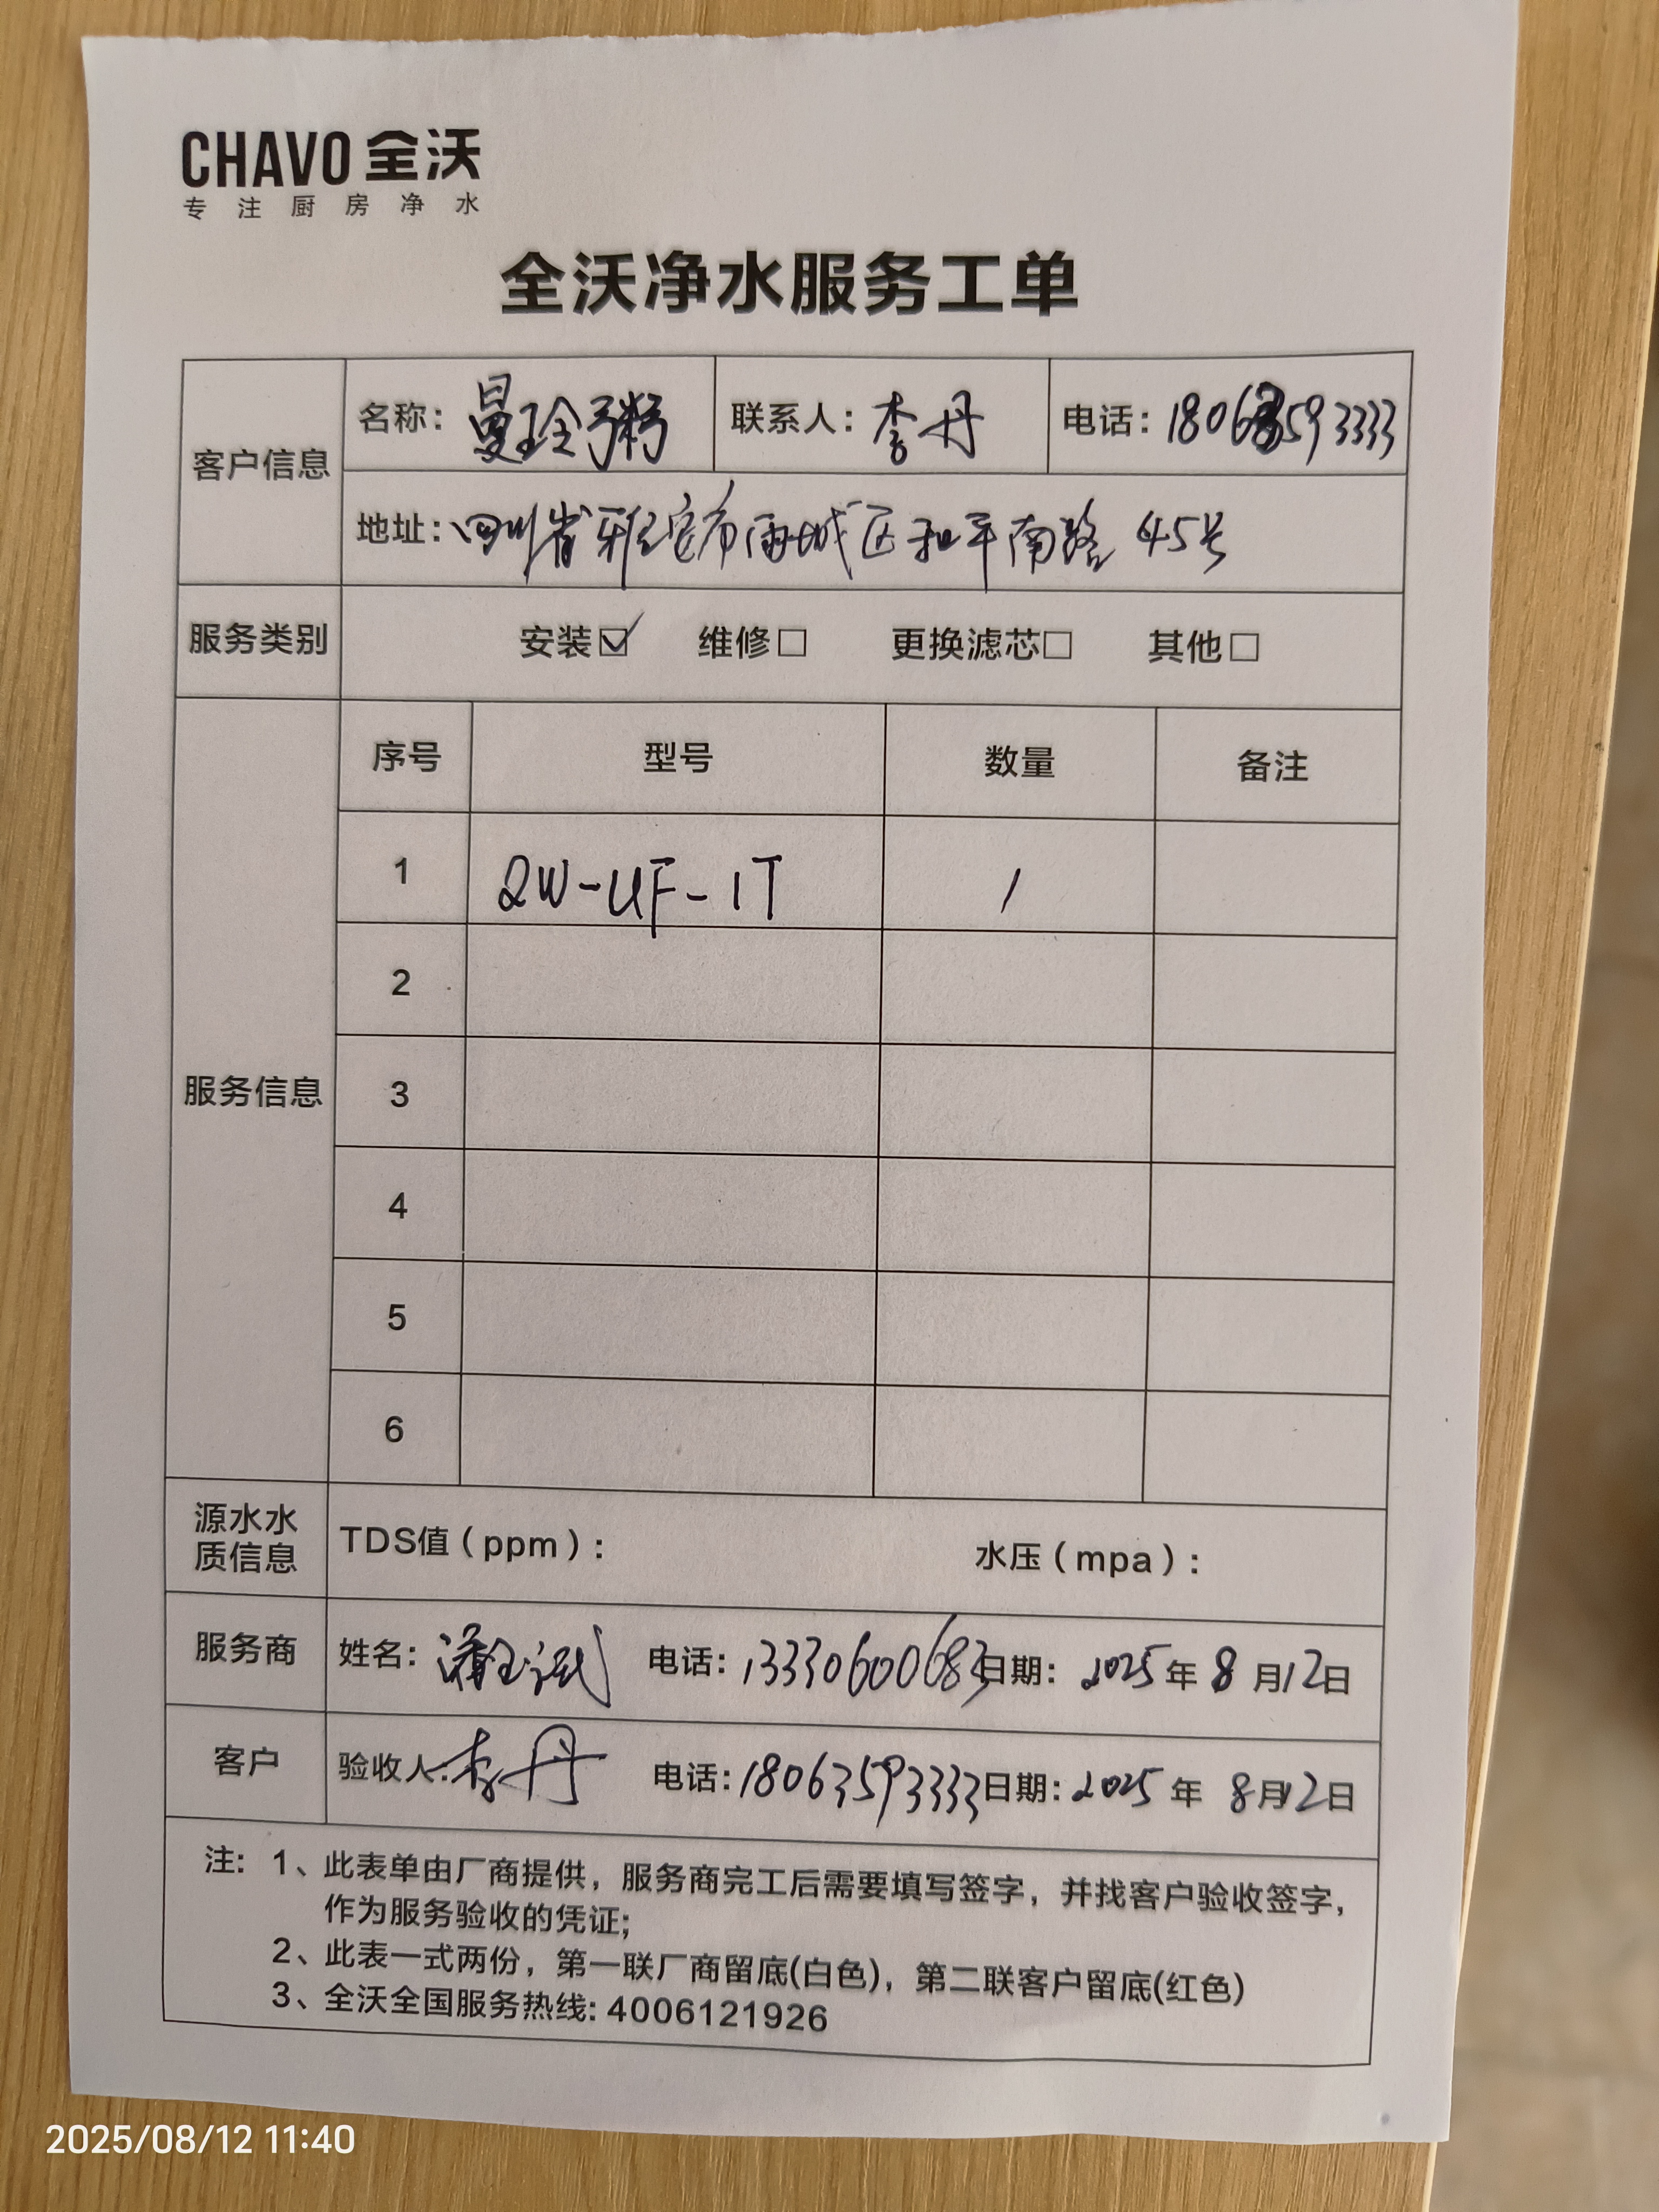 CHAVO 全沃
专注厨房净水
全沃净水服务工单
客户信息
名称：曼玲粥 联系人：李丹 电话：18063593333
地址：四川省雅安市雨城区和平南路 45号
服务类别 安装☑ 维修□ 更换滤芯□ 其他□
服务信息
序号 型号 数量 备注
1 QW-UF-1T 1
2
3
4
5
6
源水水质信息 TDS值（ppm）： 水压（mpa）：
服务商 姓名： 电话：13330600683 日期：2025年8月12日
客户 验收人：李丹 电话：18063593333 日期：2025年8月12日
注：1、此表单由厂商提供，服务商完工后需要填写签字，并找客户验收签字，
作为服务验收的凭证；
2、此表一式两份，第一联厂商留底(白色)，第二联客户留底(红色)
3、全沃全国服务热线：4006121926
2025/08/12 11:40